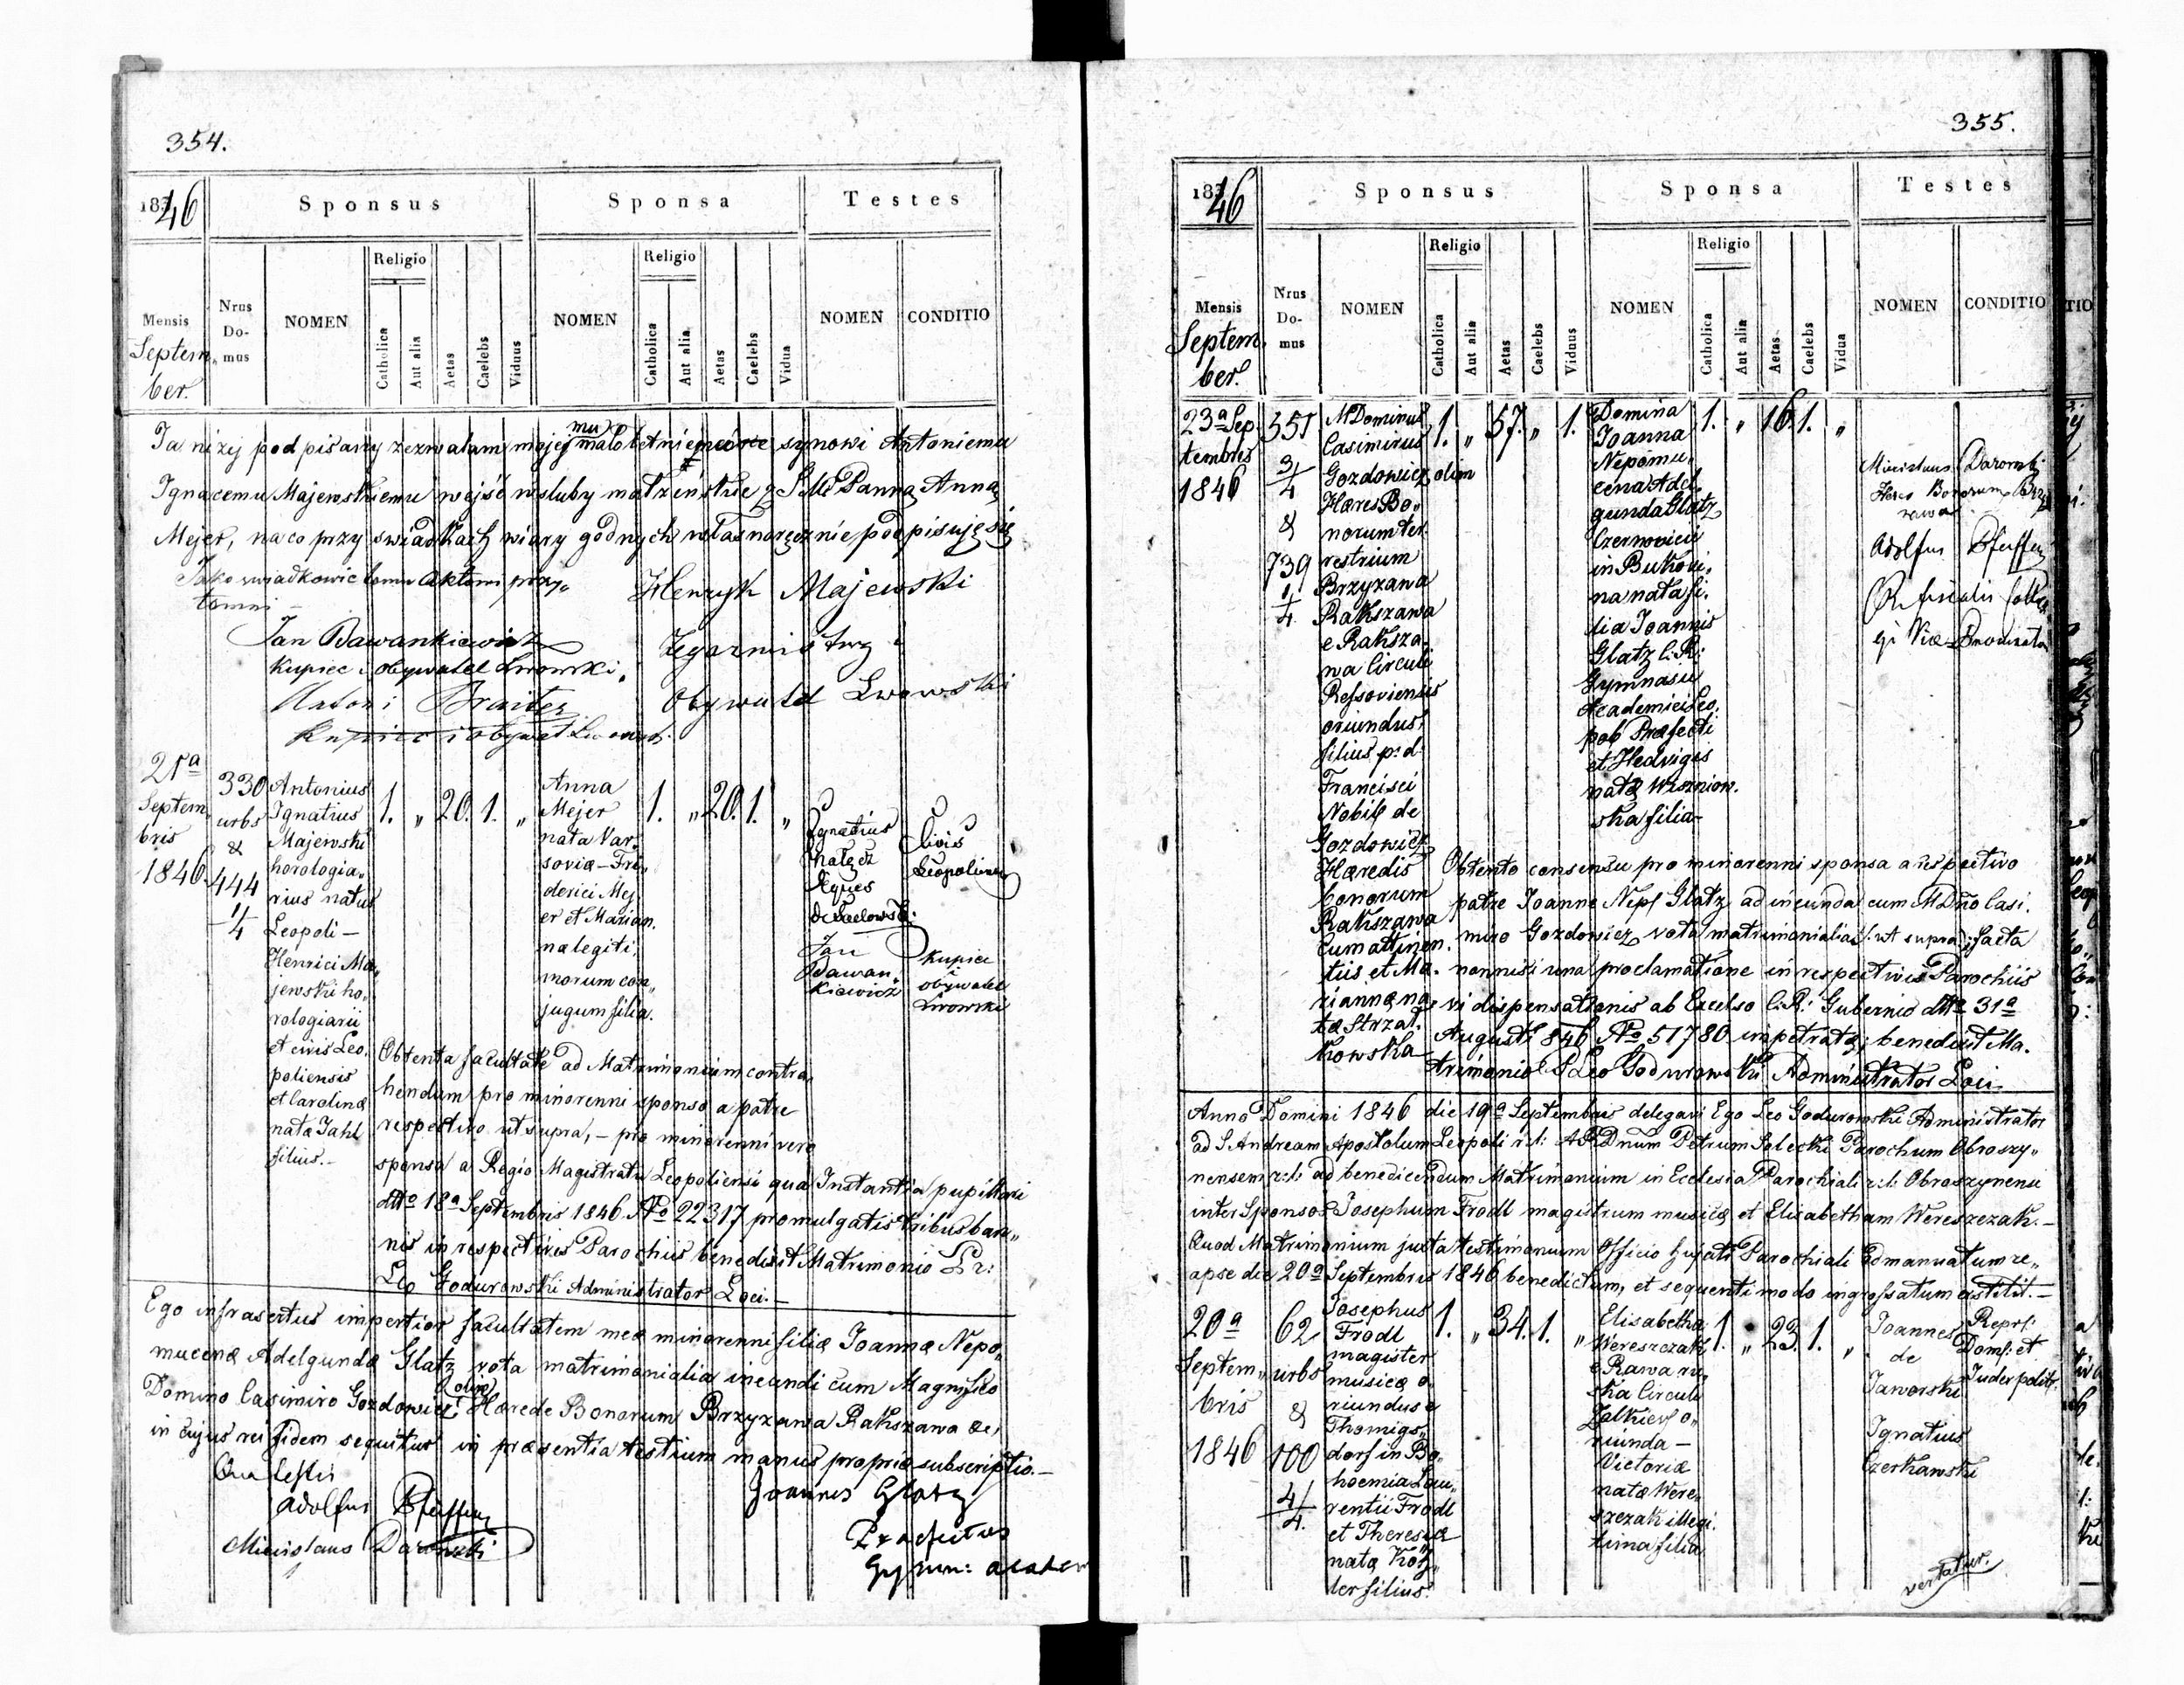 354.
1846
Sponsus
Sponsa
Testes
Mensis
Septem„
ber.
Nrus
Do-
mus
NOMEN
Religio
Catholica
Aut alia
Aetas
Caelebs
Viduus
NOMEN
Religio
Catholica
Aut alia
Aetas
Caelebs
Vidua
NOMEN
CONDITIO
Ja niżej podpisany zezwalam mojemu małoletniemu synowi Antoniemu
Ignacemu Majewskiemu wejść w śluby małżeńskie z JMć Panną Anną
Mejer, na co przy świadkach wiary godnych własnoręcznie podpisuję się
Jako świadkowie temu aktowi przy„
tomni
Henryk Majewski
Zegarmistrz i
Obywatel Lwowski
Jan Bawankiewicz
Kupiec i obywatel Lwowski.
Antoni Braiter
Kupiec i obywat Lwowsk.
21a
Septem
bris
1846
330
urbs
&
444
1/4
Antonius
Ignatius
Majewski
horologia„
rius natus
Leopoli –
Henrici Ma„
jewski ho„
rologiarii
et civis Leo.
poliensis
et Carolinæ
nata Jahl
filius.–
1. „ 20. 1. „
Anna
Mejer
nata Var„
soviæ – Fri„
derici Mej
er et Marian.
næ legiti„
morum con„
jugum filia.
1. „ 20. 1. „
Ignatius
Nałęcz
Eques
Civis
Leopoliens
Jan
Bawan„
kiewicz
kupiec
i
obywatel
Lwowski
Obtenta facultate ad Matrimonium contra„
hendum pro minorenni sponso a patre
respectivo ut supra, – pro minorenni vero
sponsa a Regio Magistratu Leopoliensi qua Instantia pupillari
ddto 18a Septembris 1846 No 22317 promulgatis tribus ban„
nis in respectivis Parochiis benedixit Matrimonio Pr:
Leo Godurowski Administrator Loci.–
Ego infrasertus impertior facultatem meæ minorenni filiæ Joannæ Nepo„
mucenæ Adelgundæ Glatz vota matrimonialia ineundi cum Magnifico
Domino Casimiro Gozdowicz olim Hærede Bonorum Brzyzawa Rakszawa &c,
in cujus rei fidem sequitur in præsentia testium manus propria subscriptio.–
Qua testis
Adolfus Pfeiffer
Micislaus Darowski
Joannes Glatz
Praefectus
Gymn: acadew
355.
1846
Sponsus
Sponsa
Testes
Mensis
Septem„
ber.
Nrus
Do-
mus
NOMEN
Religio
Catholica
Aut alia
Aetas
Caelebs
Viduus
NOMEN
Religio
Catholica
Aut alia
Aetas
Caelebs
Vidua
NOMEN
CONDITIO
23a Sep
tembris
1846
351
3/4
&
739
1/4
M Dominus
Casimirus
Gozdowicz olim
Hæres Bo„
norum ter„
restrium
Brzyzawa
Rakszawa
e Raksza„
wa Circuli
Ressoviensis
oriundus,
filius p: d:
Francisci
Nobil de
Gozdowicz
Hæredis
bonorum
Rakszawa
cum attinen.
tiis et Ma.
riannæ na„
tæ Strzał„
kowska
1. „ 57. „ 1.
Domina
Joanna
Nepomu„
cena Adel„
gunda Glatz
Czernovicii
in Bukovi„
na nata fi„
lia Joannis
Glatz C: R:
Gymnasii
Academici Leo„
pol Præfecti
et Hedvigis
natæ Wiszniow.
ska filia–
1. „ 16. 1. „
Micislaus Darowski
Heres Bonorum
Adolfus Pfeiffer
Obtento consensu pro minorenni sponsa a respectivo
patre Joanne Nep. Glatz ad ineunda cum M Dno Casi.
miro Gozdowicz vota matrimonialia ut supra; facta
nonnisi una proclamatione in respectivis Parochiis
vi dispensationis ab Excelso C: R: Gubernio ddto 31a
Augusti 846 No 51780 impetratæ; benedixit Ma.
trimonio P. Leo Godurowski Administrator Loci
Anno Domini 1846 die 19a Septembris delegavi Ego Leo Godurowski Administrator
ad S. Andream Apostolum Leopoli r: l: A R Dnum Petrum Solecki Parochum Obroszy„
nensem r: l: ad benedicendum Matrimonium in Ecclesia Parochiali r: l: Obroszynensi
inter Sponsos Josephum Frodl magistrum musicæ et Elisabetham Wereszczak.–
Quod Matrimonium juxta testimonium Officio hujati Parochiali Edmanuatum re„
apse die 20a Septembris 1846 benedictum, et sequenti modo ingrossatum extitit.–
20a
Septem„
bris
1846
62
urbs
&
100
4/4
Josephus
Frodl
magister
musicæ o„
riundus e
Thomigs„
dorf in Bo„
hoemia Lau„
rentii Frodl
et Theresiæ
natæ Koh„
ler filius.
1. „ 34. 1. „
Elisabetha
Wereszczak
e Rawa ru„
ska Circuli
Zolkiew o„
riunda –
Victoriæ
natæ Were„
szczak illegi„
tima filia
1. „ 23. 1. „
Joannes
de
Jaworski
Ignatius
Czerkawski
Repr:
Dom: et
Judex polit:
vertatur.